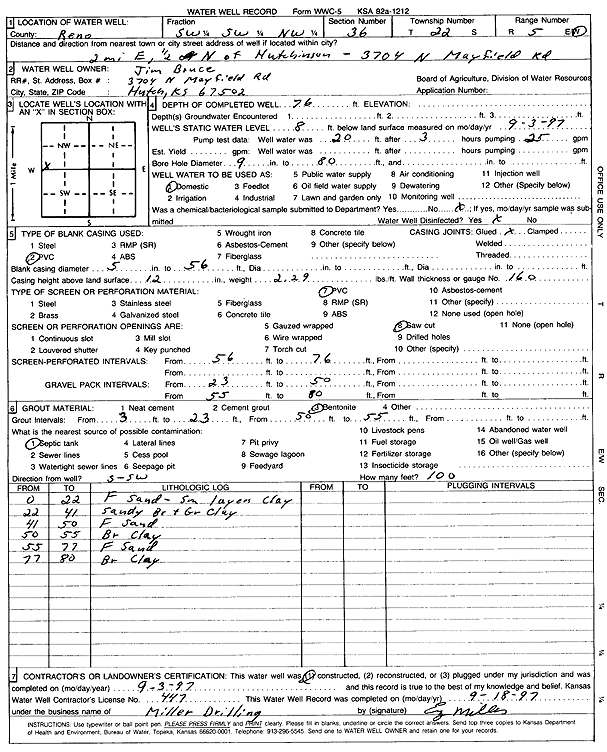 WATER WELL RECORD Form WWC-5 KSA 82a-1212
1 LOCATION OF WATER WELL: Fraction Section Number Township Number Range Number
County: Reno SW ¼ SW ¼ NW ¼ 36 T 22 S R 5 E/W
Distance and direction from nearest town or city street address of well if located within city?
2 mi E, ½ N of Hutchinson - 3704 N Mayfield Rd
2 WATER WELL OWNER: Jim Bruce
RR#, St. Address, Box # : 3704 N Mayfield Rd Board of Agriculture, Division of Water Resources
City, State, ZIP Code : Hutch, KS 67502 Application Number:
3 LOCATE WELL'S LOCATION WITH AN "X" IN SECTION BOX:
N
NW NE
W X E
SW SE
S
1 Mile
4 DEPTH OF COMPLETED WELL 76 ft. ELEVATION:
Depth(s) Groundwater Encountered 1. ft. 2. ft. 3. ft.
WELL'S STATIC WATER LEVEL 8 ft. below land surface measured on mo/day/yr 9-3-97
Pump test data: Well water was 20 ft. after 3 hours pumping 25 gpm
Est. Yield gpm: Well water was ft. after hours pumping gpm
Bore Hole Diameter 9 in. to 80 ft., and in. to ft.
WELL WATER TO BE USED AS: 5 Public water supply 8 Air conditioning 11 Injection well
1 Domestic 3 Feedlot 6 Oil field water supply 9 Dewatering 12 Other (Specify below)
2 Irrigation 4 Industrial 7 Lawn and garden only 10 Monitoring well
Was a chemical/bacteriological sample submitted to Department? Yes No X ; If yes, mo/day/yr sample was submitted
Water Well Disinfected? Yes X No
5 TYPE OF BLANK CASING USED: 5 Wrought iron 8 Concrete tile CASING JOINTS: Glued X Clamped
1 Steel 3 RMP (SR) 6 Asbestos-Cement 9 Other (specify below) Welded
2 PVC 4 ABS 7 Fiberglass Threaded
Blank casing diameter 5 in. to 56 ft., Dia in. to ft., Dia in. to ft.
Casing height above land surface 12 in., weight 2.29 lbs./ft. Wall thickness or gauge No. 160
TYPE OF SCREEN OR PERFORATION MATERIAL: 7 PVC 10 Asbestos-cement
1 Steel 3 Stainless steel 5 Fiberglass 8 RMP (SR) 11 Other (specify)
2 Brass 4 Galvanized steel 6 Concrete tile 9 ABS 12 None used (open hole)
SCREEN OR PERFORATION OPENINGS ARE: 5 Gauzed wrapped 8 Saw cut 11 None (open hole)
1 Continuous slot 3 Mill slot 6 Wire wrapped 9 Drilled holes
2 Louvered shutter 4 Key punched 7 Torch cut 10 Other (specify)
SCREEN-PERFORATED INTERVALS: From 56 ft. to 76 ft., From ft. to ft.
From ft. to ft., From ft. to ft.
GRAVEL PACK INTERVALS: From 23 ft. to 50 ft., From ft. to ft.
From 55 ft. to 80 ft., From ft. to ft.
6 GROUT MATERIAL: 1 Neat cement 2 Cement grout 3 Bentonite 4 Other
Grout Intervals: From 3 ft. to 23 ft., From 50 ft. to 55 ft., From ft. to ft.
What is the nearest source of possible contamination: 10 Livestock pens 14 Abandoned water well
1 Septic tank 4 Lateral lines 7 Pit privy 11 Fuel storage 15 Oil well/Gas well
2 Sewer lines 5 Cess pool 8 Sewage lagoon 12 Fertilizer storage 16 Other (specify below)
3 Watertight sewer lines 6 Seepage pit 9 Feedyard 13 Insecticide storage
Direction from well? S-SW How many feet? 100
FROM TO LITHOLOGIC LOG FROM TO PLUGGING INTERVALS
0 22 F Sand - Sm layers Clay
22 41 Sandy Br + Gr Clay
41 50 F Sand
50 55 Br Clay
55 77 F Sand
77 80 Br Clay
7 CONTRACTOR'S OR LANDOWNER'S CERTIFICATION: This water well was (1) constructed, (2) reconstructed, or (3) plugged under my jurisdiction and was
completed on (mo/day/year) 9-3-97 and this record is true to the best of my knowledge and belief. Kansas
Water Well Contractor's License No. 447 This Water Well Record was completed on (mo/day/yr) 9-18-97
under the business name of Miller Drilling by (signature) Miller
INSTRUCTIONS: Use typewriter or ball point pen. PLEASE PRESS FIRMLY and PRINT clearly. Please fill in blanks, underline or circle the correct answers. Send top three copies to Kansas Department
of Health and Environment, Bureau of Water, Topeka, Kansas 66620-0001. Telephone: 913-296-5545. Send one to WATER WELL OWNER and retain one for your records.
OFFICE USE ONLY
T
R
EW
SEC.
¼
¼
¼